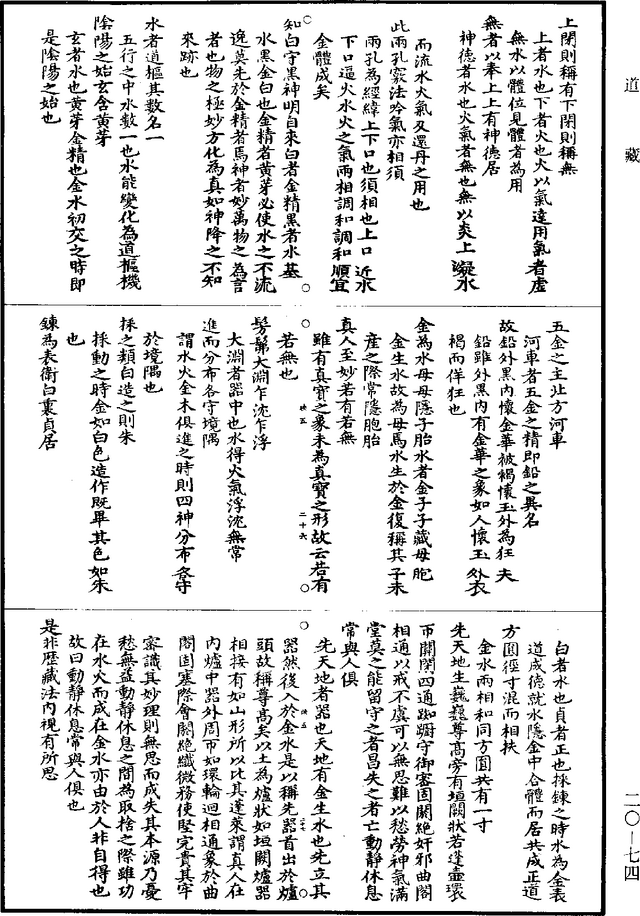 道藏
上閉則稱有下閉則稱無
上者水也下者火也火以氣達用氣者虛
無水以體位見體者為用
無者以奉上上有神德居
神德者水也火氣者無也無以炎上凝水
而流水火氣及還丹之用也
此兩孔竅法吟氣亦相須
兩孔為經緯上下口也須相也上口近水
下口逼火水火之氣兩相調和調和順宜
金體成矣
知白守黑神明自來白者金精黑者水基
水黑金白也金精者黃芽必使水之不流
逸莫先於金精者焉神者妙萬物之為言
者也物之極妙方化為真如神降之不知
來跡也
水者道樞其數名一
五行之中水數一也水能變化為道樞機
陰陽之始玄含黃芽
玄者水也黃芽金精也金水初交之時即
是陰陽之始也
五金之主北方河車
河車者五金之精即鉛之異名
故鉛外黑內懷金華被褐懷玉外為狂夫
鉛雖外黑內有金華之象如人懷玉外衣
褐而佯狂也
金為水母母隱子胎水者金子子藏母胞
金生水故為母焉水生於金復稱其子未
產之際常隱胞胎
真人至妙若有若無
雖有真寶之象未為真寶之形故云若有
若無也
髣髴大淵乍沈乍浮
大淵者器中也水得火氣浮沈無常
進而分布各守境隅
謂水火金木俱進之時則四神分布各守
於境隅也
採之類白造之則朱
採動之時金如白色造作既畢其色如朱
也
鍊為表衛白裏貞居
白者水也貞者正也採鍊之時水為金表
道成德就水隱金中合體而居共成正道
方圓徑寸混而相扶
金水兩相和同方圓共有一寸
先天地生巍巍尊高旁有垣闕狀若蓬壺環
帀關閉四通踟躕守御密固闔絕奸邪曲閣
相通以戒不虞可以無思難以愁勞神氣滿
堂莫之能留守之者昌失之者亡動靜休息
常與人俱
先天地者器也天地有金生水也先立其
器然後入於金水是以稱先器首出於爐
頭故稱尊高矣以土為爐狀如垣闕爐器
相接有如山形所以比其蓬萊謂真人在
內爐中器外周帀如環輪迴相通象於曲
閣固塞際會闔絕纖微務使堅完貴其牢
密識其妙理則無思而成失其本源乃憂
愁無益動靜休息之間為取捨之際雖功
在水火而成在金水亦由於人非自得也
故曰動靜休息常與人俱也
是非歷藏法內視有所思
二〇—七四